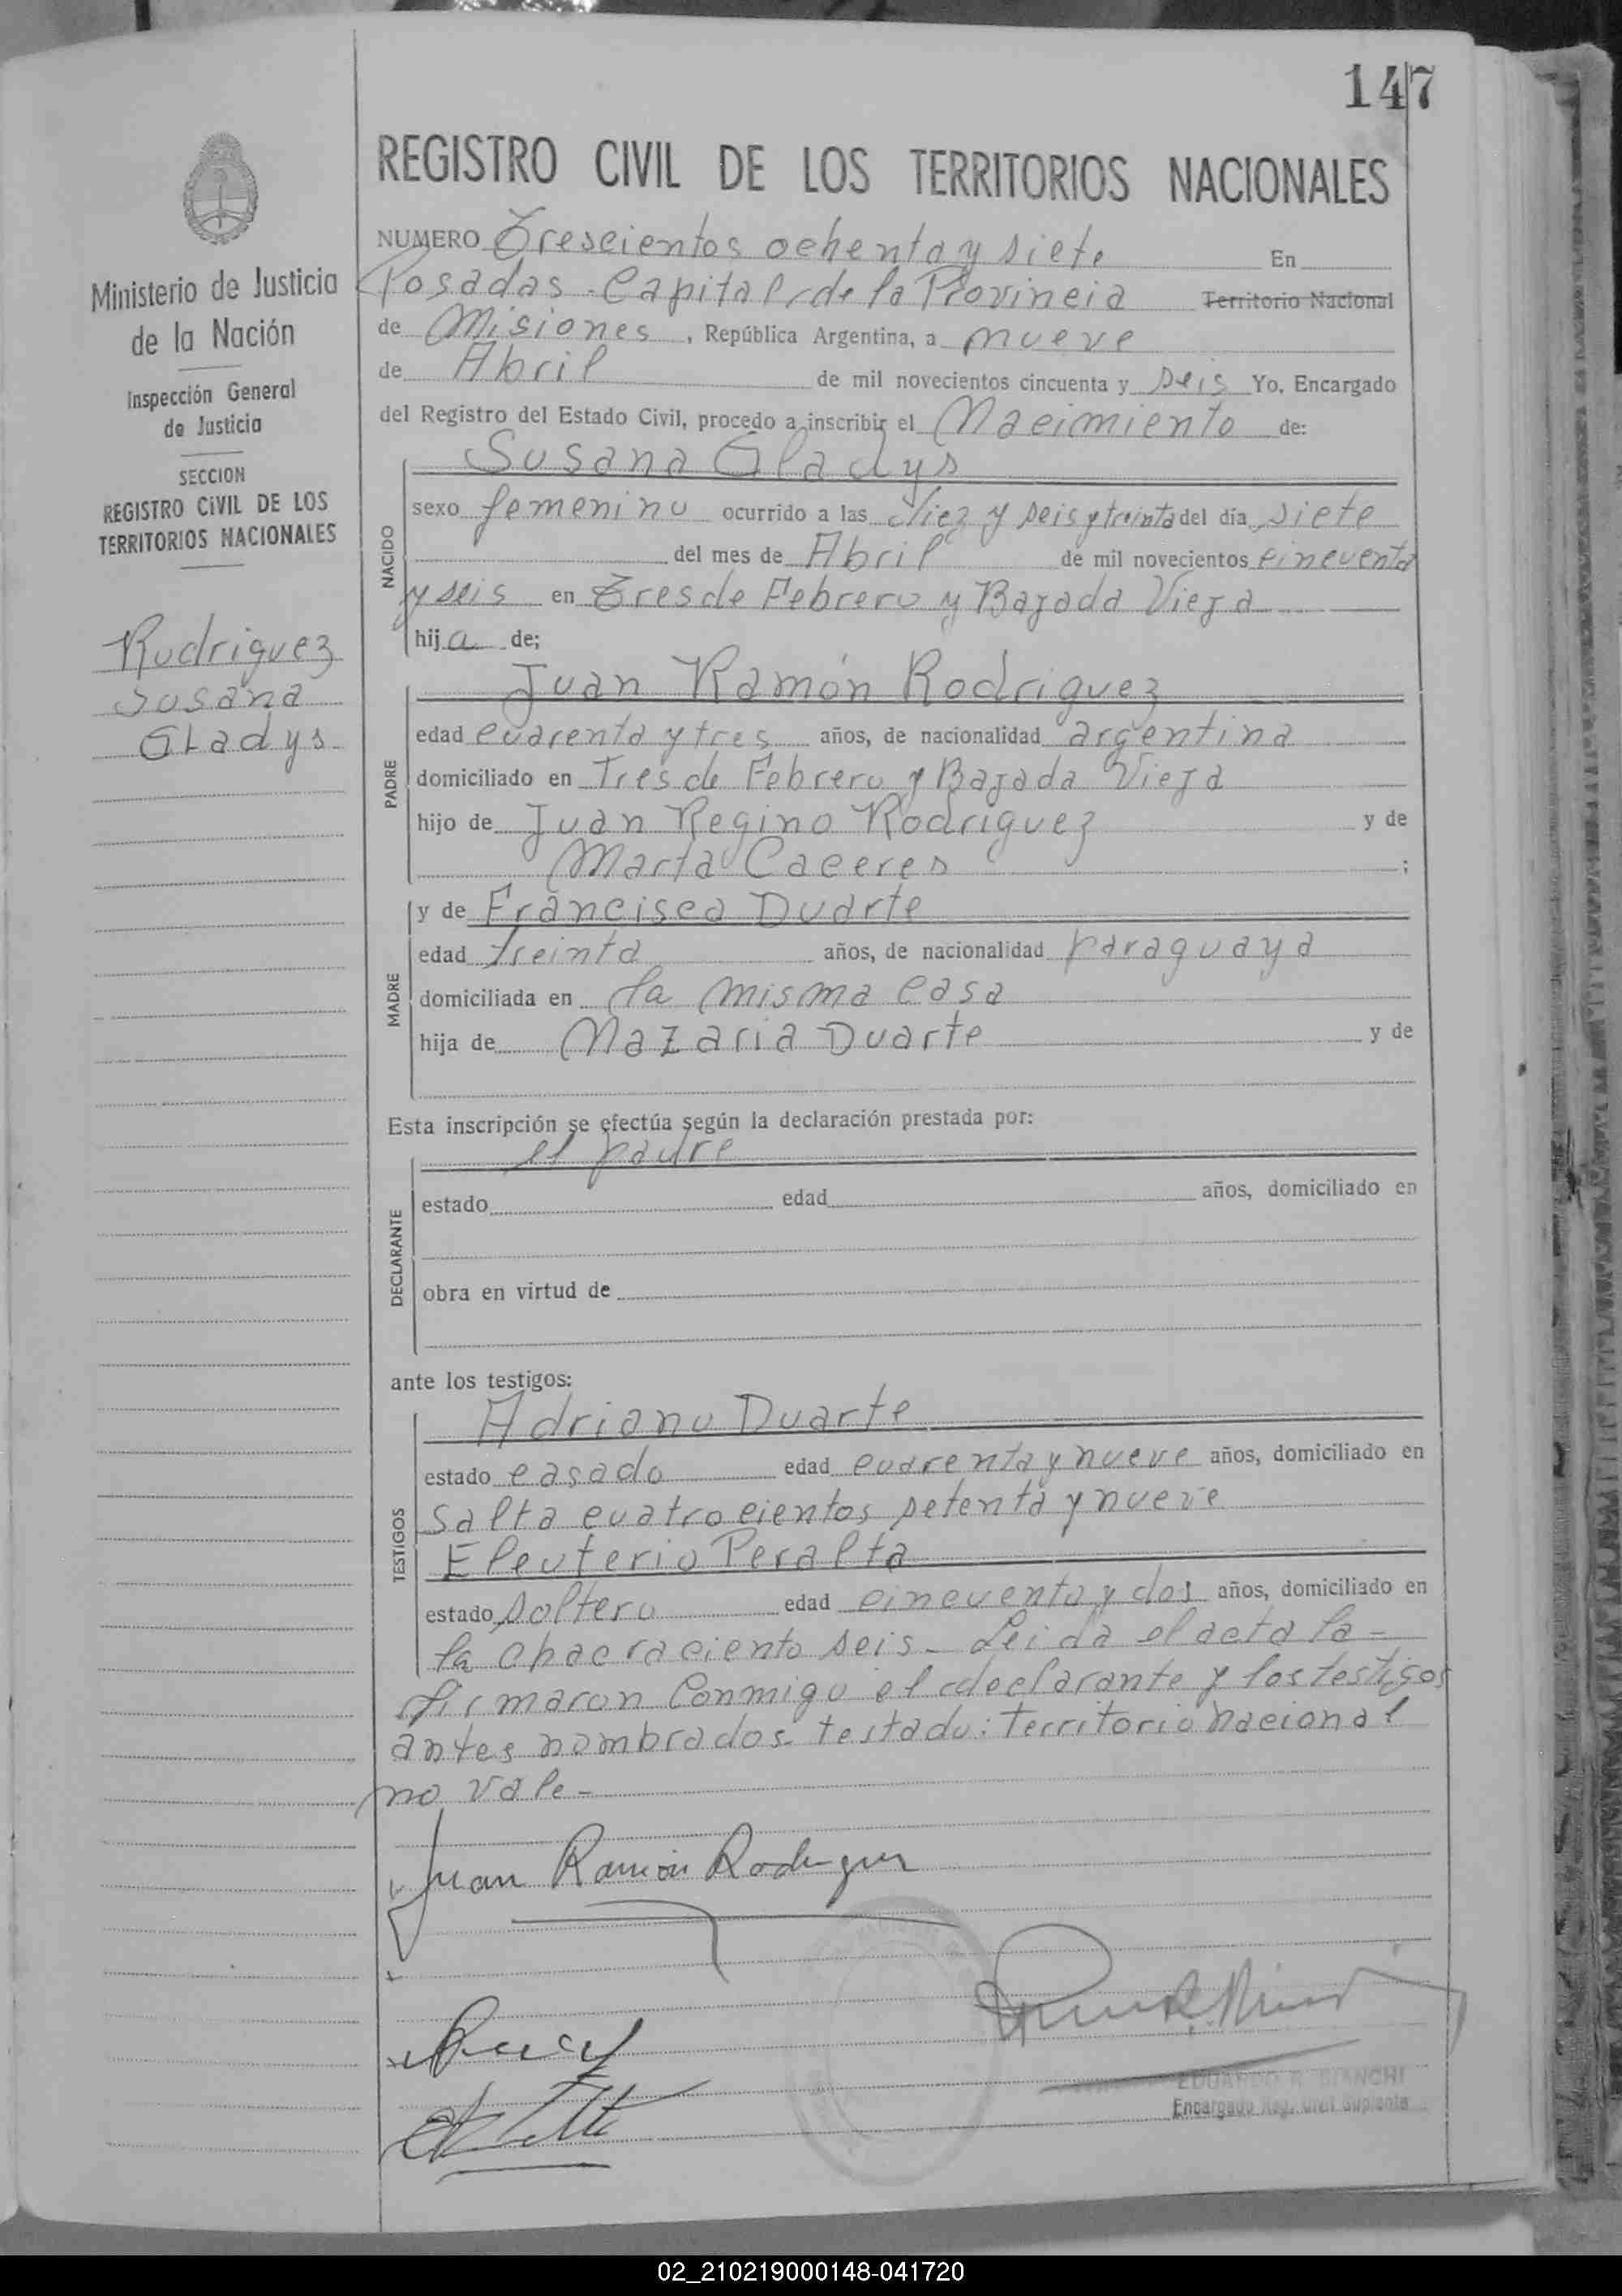 147
REGISTRO CIVIL DE LOS TERRITORIOS NACIONALES
Ministerio de Justicia
de la Nación
Inspección General
de Justicia
SECCION
REGISTRO CIVIL DE LOS
TERRITORIOS NACIONALES
Rodriguez
Susana
Gladys
NUMERO Trescientos ochenta y siete En
Posadas - Capital de la Provincia Territorio Nacional
de Misiones, República Argentina, a nueve
de Abril de mil novecientos cincuenta y seis Yo, Encargado
del Registro del Estado Civil, procedo a inscribir el Nacimiento de:
NACIDO
Susana Gladys
sexo femenino ocurrido a las diez y seis y treinta del día siete
del mes de Abril de mil novecientos cincuenta
y seis en Tres de Febrero y Bajada Vieja
hija de;
PADRE
Juan Ramón Rodriguez
edad cuarenta y tres años, de nacionalidad argentina
domiciliado en Tres de Febrero y Bajada Vieja
hijo de Juan Regino Rodriguez y de
Marta Caceres ;
MADRE
y de Francisca Duarte
edad treinta años, de nacionalidad paraguaya
domiciliada en la misma casa
hija de Nazaria Duarte y de
Esta inscripción se efectúa según la declaración prestada por:
DECLARANTE
el padre
estado edad años, domiciliado en
obra en virtud de
ante los testigos:
TESTIGOS
Adriano Duarte
estado casado edad cuarenta y nueve años, domiciliado en
Salta cuatrocientos setenta y nueve
Eleuterio Peralta
estado soltero edad cincuenta y dos años, domiciliado en
la chacra ciento seis - Leida el acta la -
firmaron conmigo el declarante y los testigos
antes nombrados. testado: Territorio nacional
no vale -
Juan Ramón Rodriguez
EDUARDO R. BIANCHI
Encargado Reg. Civil Suplente
02_210219000148-041720